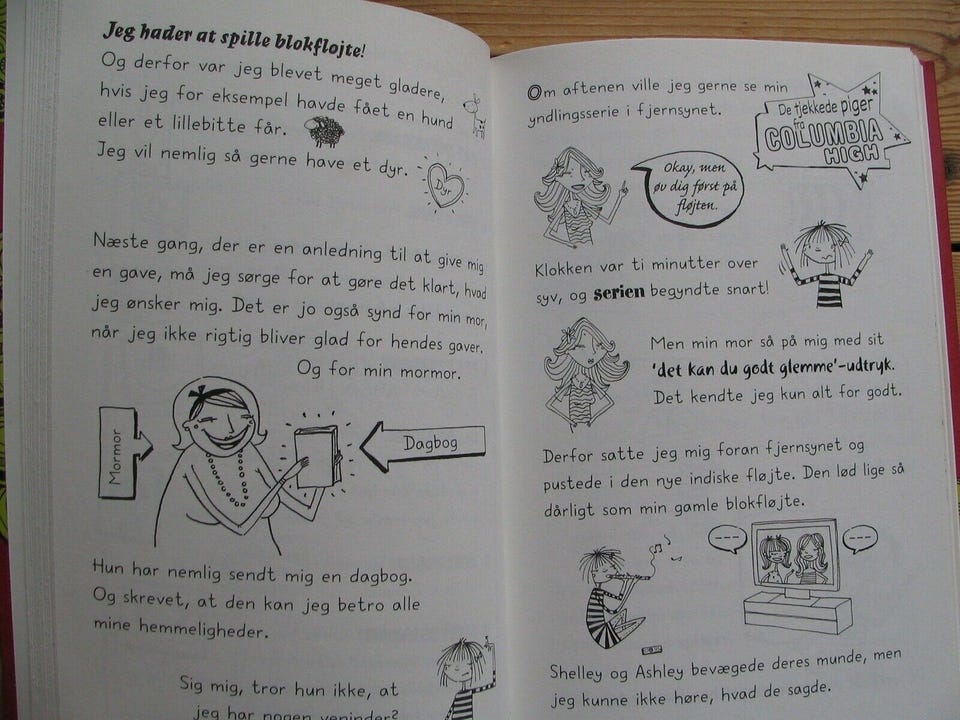 Jeg hader at spille blokfløjte!
Og derfor var jeg blevet meget gladere,
hvis jeg for eksempel havde fået en hund
eller et lillebitte får.
Jeg vil nemlig så gerne have et dyr.
Dyr
Næste gang, der er en anledning til at give mig
en gave, må jeg sørge for at gøre det klart, hvad
jeg ønsker mig. Det er jo også synd for min mor,
når jeg ikke rigtig bliver glad for hendes gaver.
Og for min mormor.
Mormor
Dagbog
Hun har nemlig sendt mig en dagbog.
Og skrevet, at den kan jeg betro alle
mine hemmeligheder.
Sig mig, tror hun ikke, at
jeg har nogen veninder?
Om aftenen ville jeg gerne se min
yndlingsserie i fjernsynet.
De tjekkede piger
fra
COLUMBIA
HIGH
Okay, men
øv dig først på
fløjten.
Klokken var ti minutter over
syv, og serien begyndte snart!
Men min mor så på mig med sit
'det kan du godt glemme'-udtryk.
Det kendte jeg kun alt for godt.
Derfor satte jeg mig foran fjernsynet og
pustede i den nye indiske fløjte. Den lød lige så
dårligt som min gamle blokfløjte.
Shelley og Ashley bevægede deres munde, men
jeg kunne ikke høre, hvad de sagde.